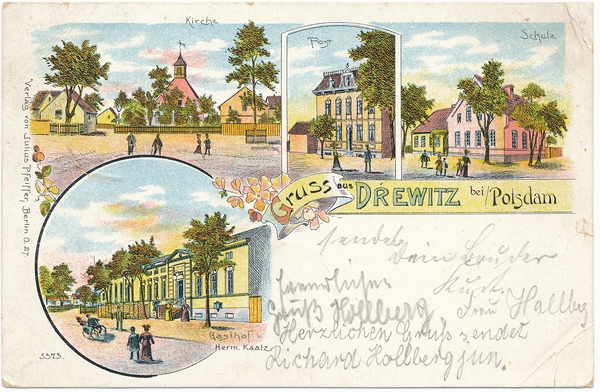 Kirche
Post
Schule
Verlag von Julius Pfeiffer, Berlin O. 27
Gruss aus DREWITZ bei/Potsdam
Gasthof v.
Herm. Kaatz
5573.
sendet
dein Bruder
Gruß Hollberg
Herzlichen Gruß sendet
Richard Hollberg jun.